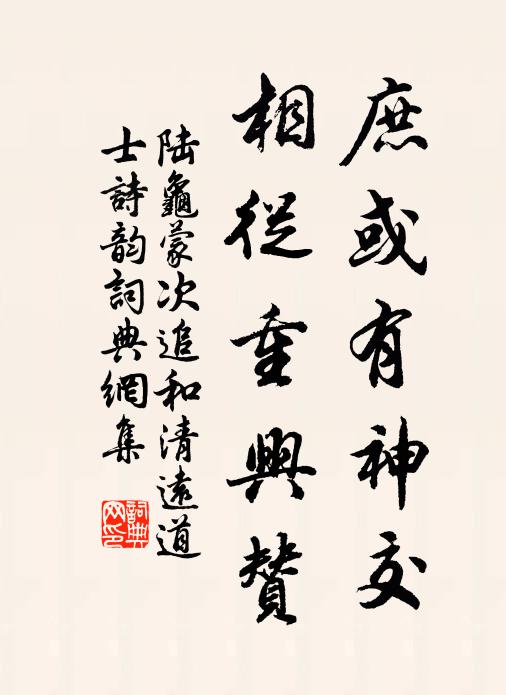 庶或有神交
相從重興贊
陆龜蒙次追和清遠道
士詩韵詞典網集
詞典网印